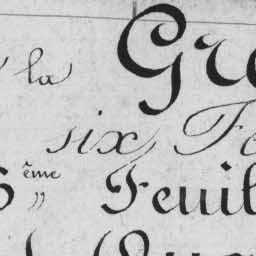 la Gre
six Fe
6ème „ Feuil